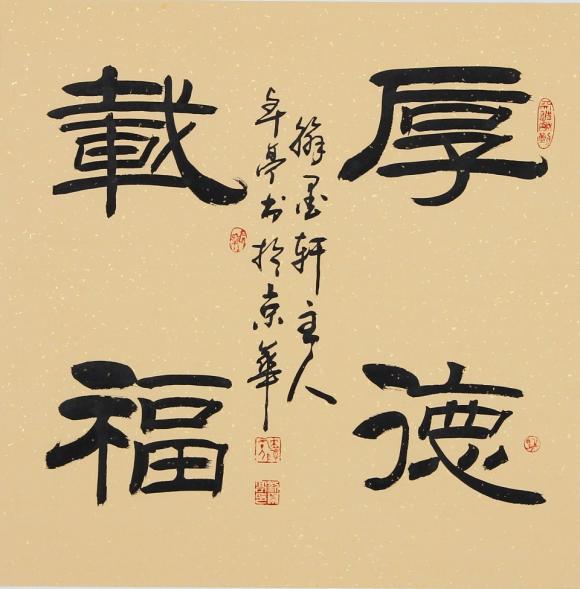 厚德
載福
翰墨轩主人
年亭书於京華